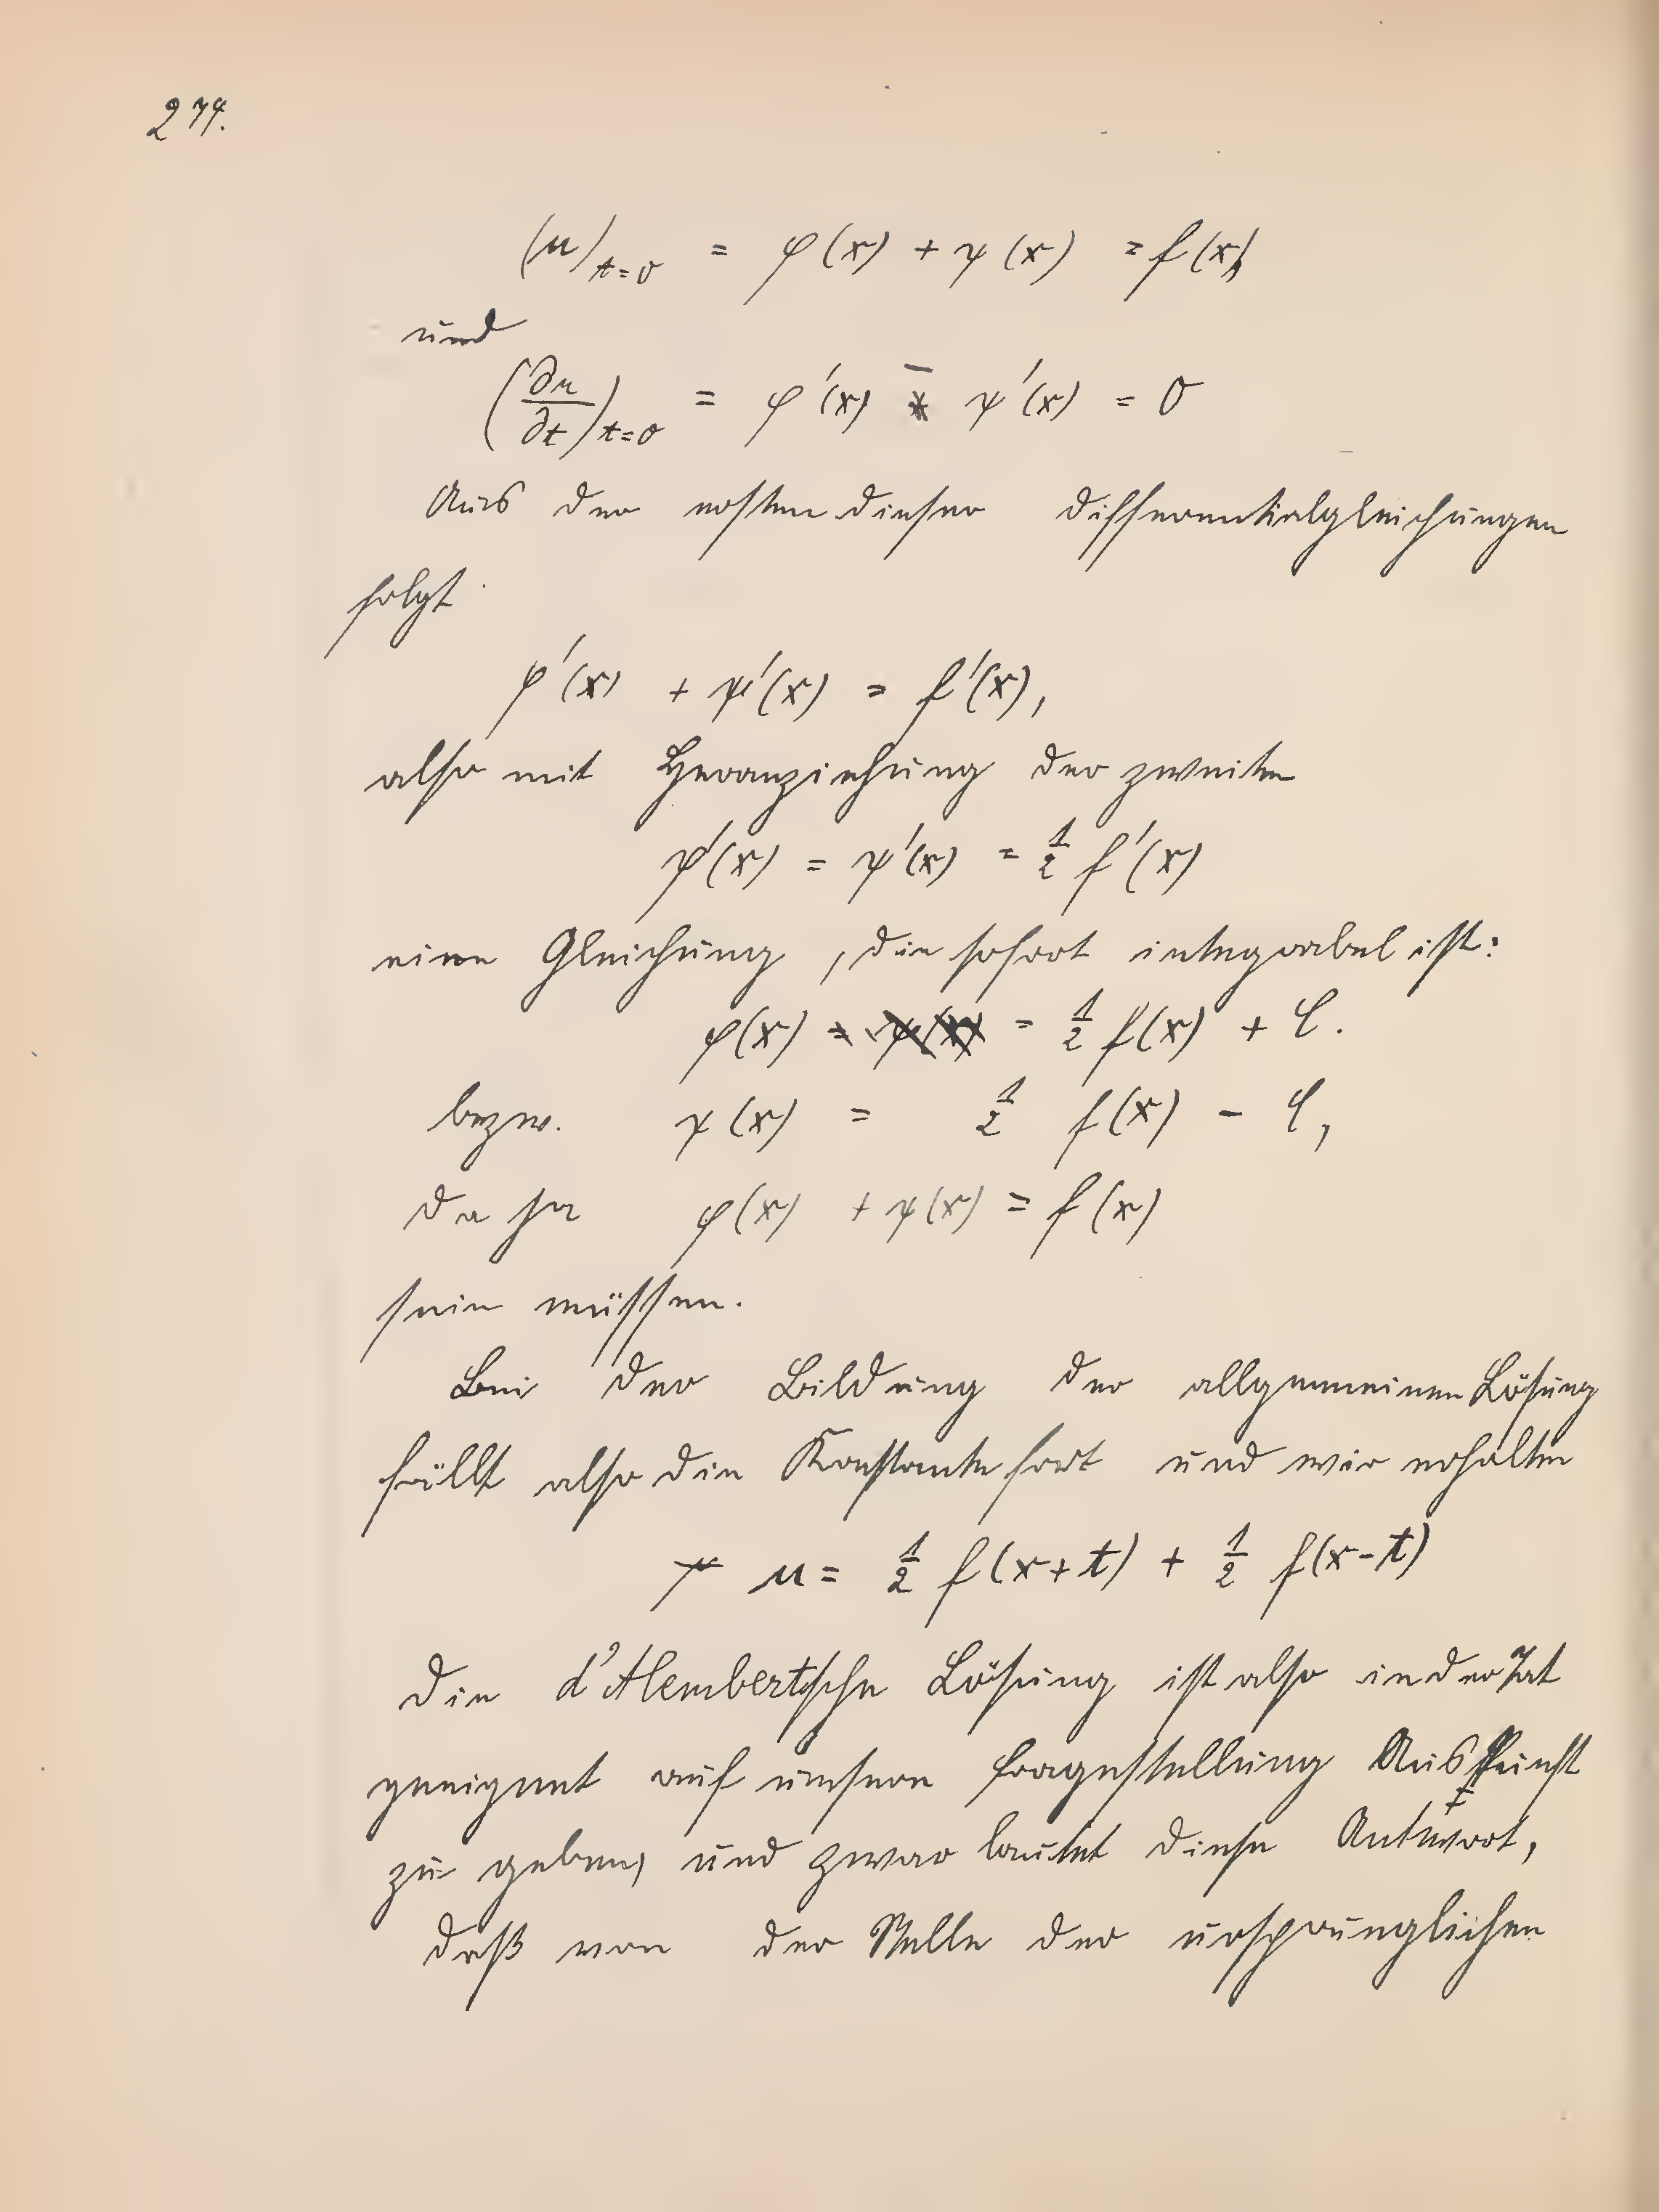 274.
(u)_{t=0} = φ(x) + ψ(x) = f(x),
und
(∂u/∂t)_{t=0} = φ'(x) - ψ'(x) = 0
Aus der ersten dieser Differentialgleichungen
folgt
φ'(x) + ψ'(x) = f'(x),
also mit Heranziehung der zweiten
φ'(x) = ψ'(x) = 1/2 f'(x)
eine Gleichung, die sofort integrabel ist:
φ(x) = 1/2 f(x) + C.
bezw. ψ(x) = 1/2 f(x) - C,
da ja φ(x) + ψ(x) = f(x)
sein müssen.
Bei der Bildung der allgemeinen Lösung
fällt also die Konstante fort und wir erhalten
u = 1/2 f(x+t) + 1/2 f(x-t)
Die d'Alembertsche Lösung ist also in der Tat
geeignet auf unsere Fragestellung Auskunft
zu geben, und zwar lautet diese Antwort,
daß von der Stelle der ursprünglichen